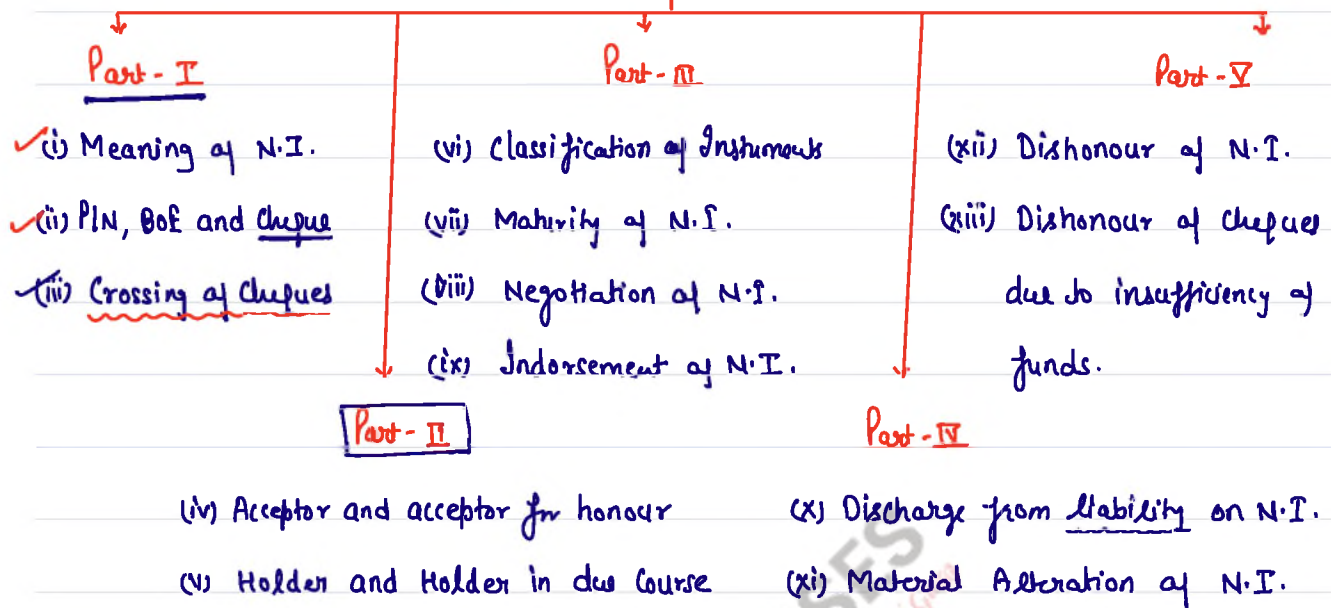 Part - I
(i) Meaning of N.I.
(ii) P/N, BoE and Cheque
(iii) Crossing of Cheques
Part - III
(vi) Classification of Instuments
(vii) Maturity of N.I.
(viii) Negotiation of N.I.
(ix) Indorsement of N.I.
Part - V
(xii) Dishonour of N.I.
(xiii) Dishonour of Cheques
due to insufficiency of
funds.
Part - II
(iv) Acceptor and acceptor for honour
(v) Holder and Holder in due Course
Part - IV
(x) Discharge from liability on N.I.
(xi) Material Alteration of N.I.